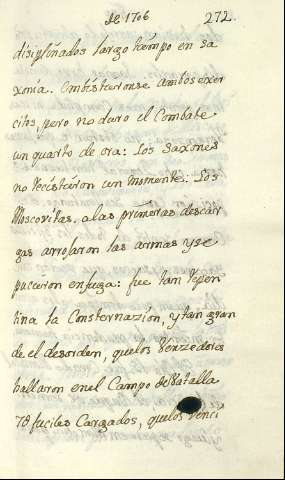 de 1706 272.
disiplinados largo tiempo en sa
xonia. Embistieronse ambos exer
citos, pero no duro el Combate
un quarto de ora: los saxones
no resistieron un momento: Los
Moscovitas, alas primeras descar
gas arrojaron las armas yse
pucieron enfuga: fue tam repen
tina la Consternazion, y tan gran
de el desorden, quelos Venzedores
hallaron enel Campo de Batalla
78 fuciles Cargados, quelos Venci